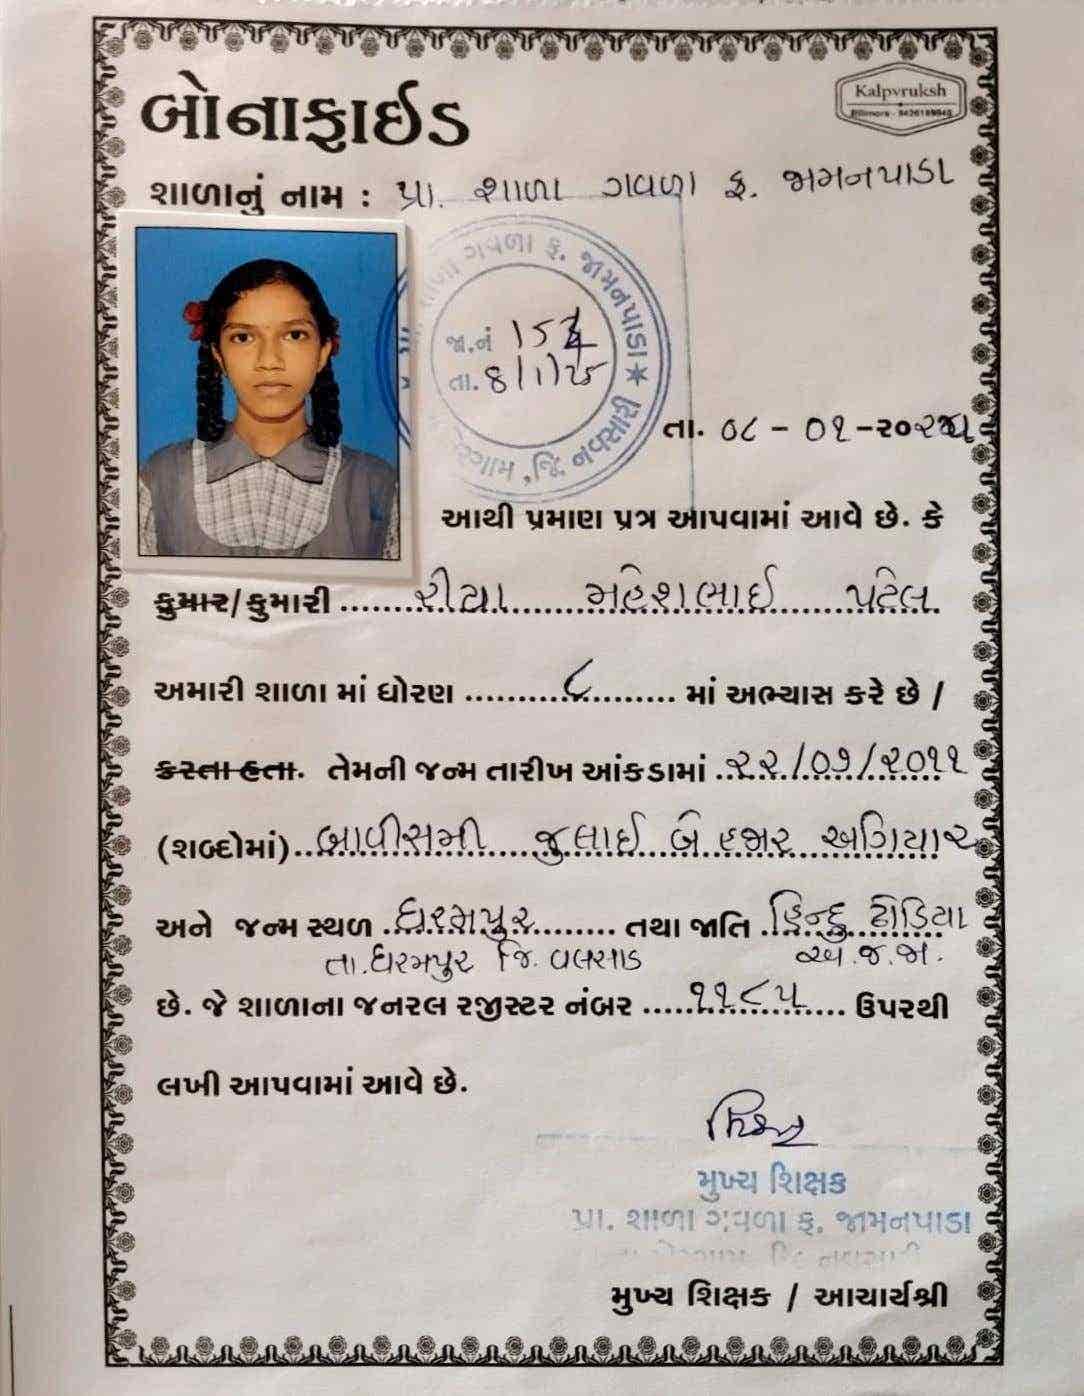 બોનાફાઈડ
Kalpvruksh
Bilimora - 9426189845
શાળાનું નામ : પ્રા. શાળા ગવળા ફ. જામનપાડા
ગવળા ફ. જામનપાડા
જા.નં
તા. 8/1/25
જિ. નવસારી
તા. ૦૮ - ૦૧ -૨૦૨૫
આથી પ્રમાણ પત્ર આપવામાં આવે છે. કે
કુમાર/કુમારી ......રીયા........મહેશભાઈ........પટેલ.
અમારી શાળા માં ધોરણ ..........૮......... માં અભ્યાસ કરે છે /
કરતા હતા. તેમની જન્મ તારીખ આંકડામાં ..૨૨./૦૭/૨૦૧૧
(શબ્દોમાં)..બાવીસમી....જુલાઈ...બે હજાર...અગિયાર
અને જન્મ સ્થળ .ધરમપુર........ તથા જાતિ .હિન્દુ ઢોડિયા
તા.ધરમપુર જિ. વલસાડ અ.જ.જા.
છે. જે શાળાના જનરલ રજીસ્ટર નંબર .....૧૧૮૫.......... ઉપરથી
લખી આપવામાં આવે છે.
મુખ્ય શિક્ષક
પ્રા. શાળા ગવળા ફ. જામનપાડા
મુખ્ય શિક્ષક / આચાર્યશ્રી